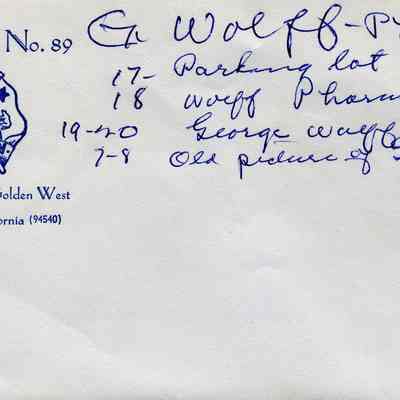 No. 89
Ex Wolff - P
17- Parking lot
18 Wolff Pharm
19-20 George Wolff
7-8 Old picture of
Golden West
ornia (94540)